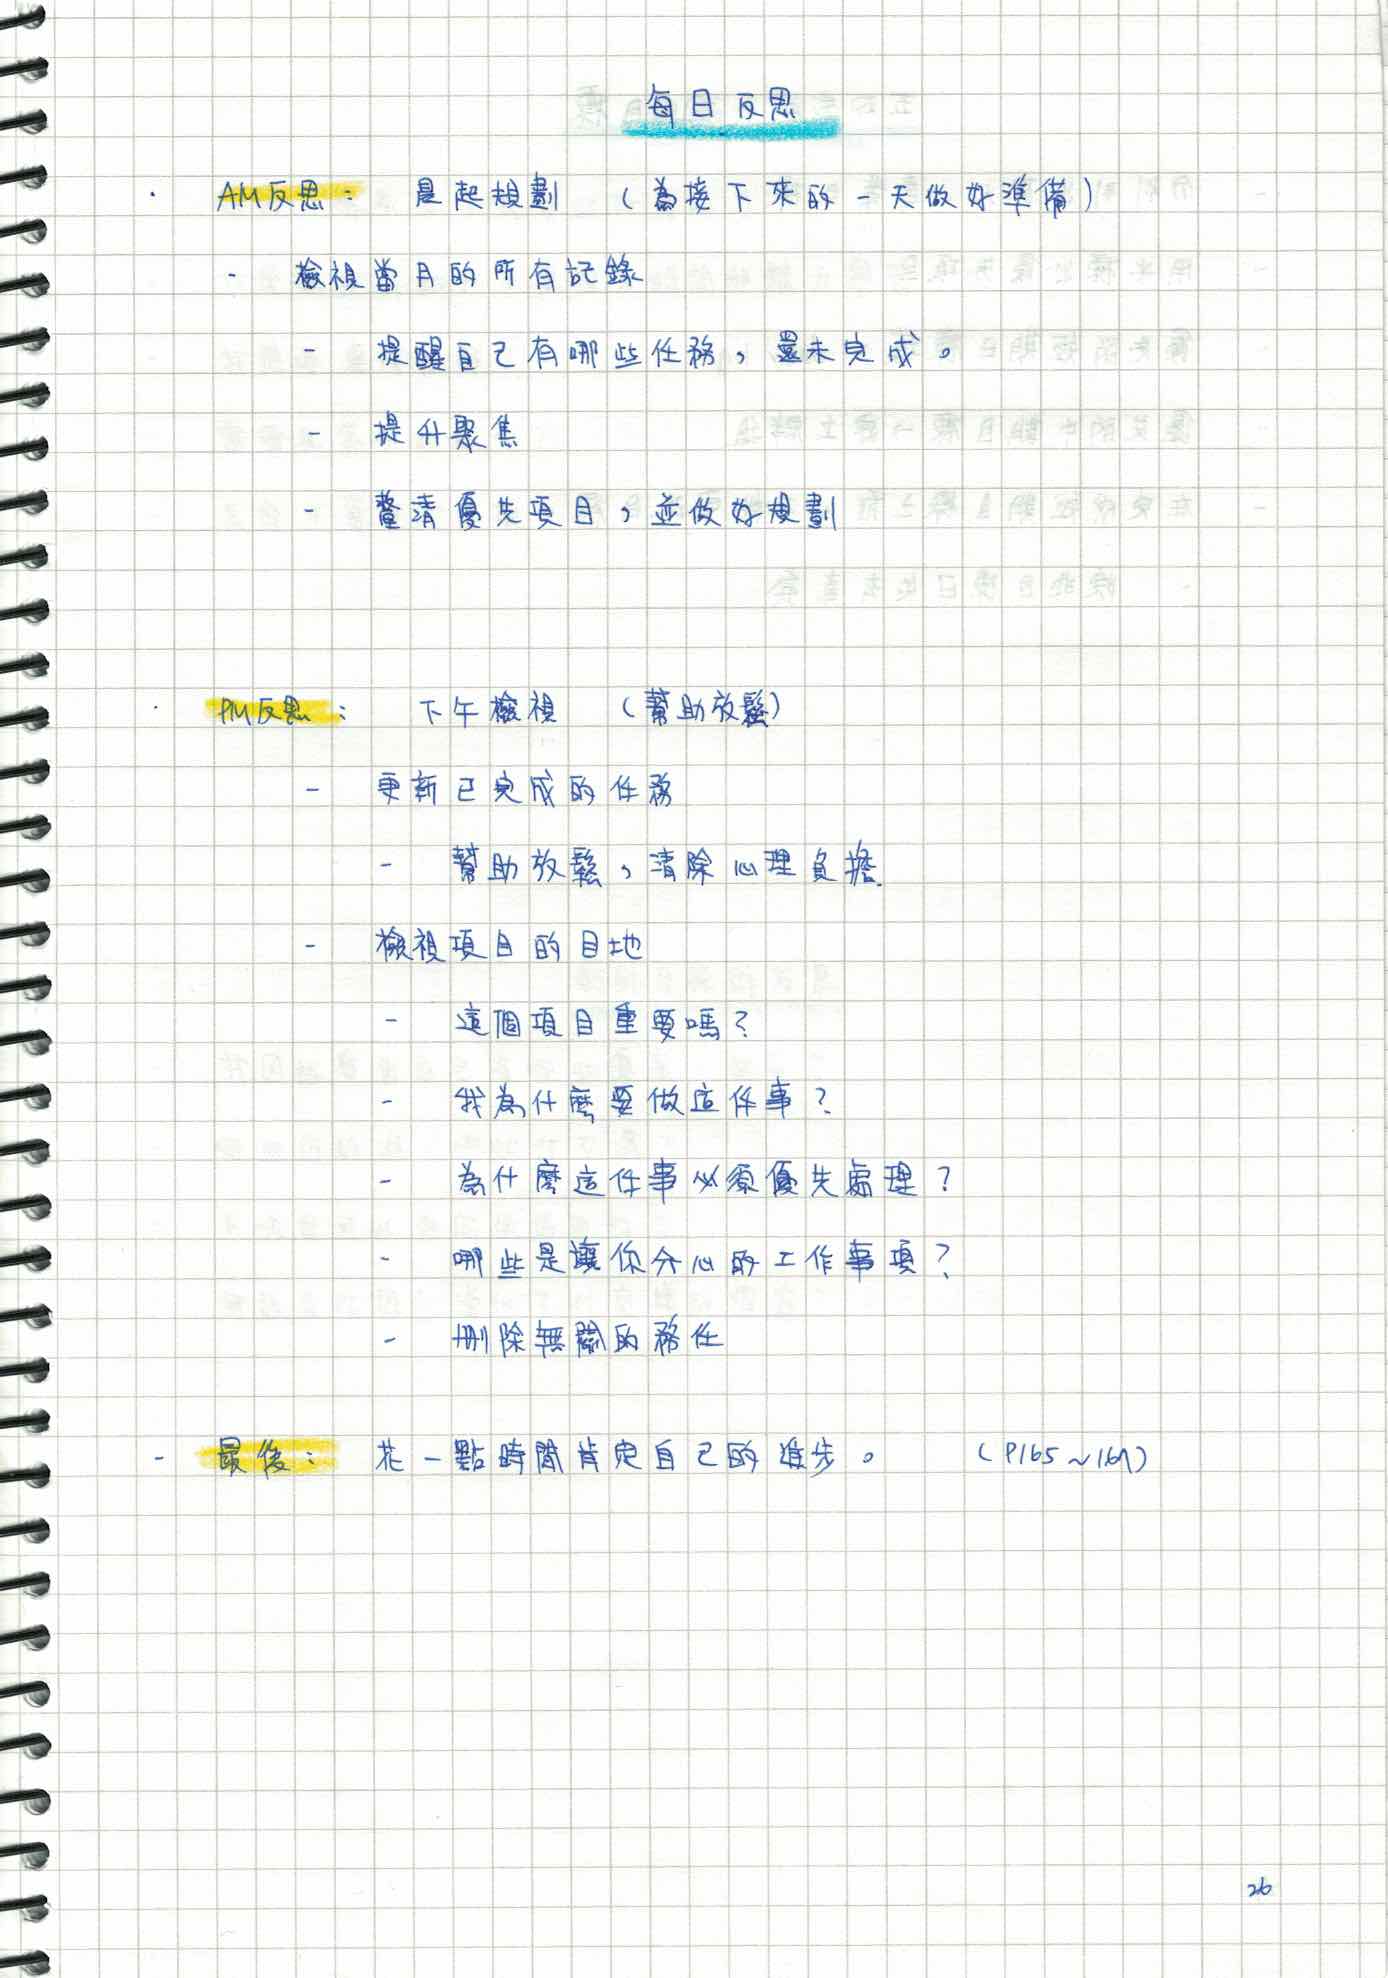 每日反思
· AM反思： 晨起規劃 （為接下來的一天做好準備）
- 檢視當月的所有記錄
- 提醒自己有哪些任務，還未完成。
- 提升聚焦
- 釐清優先項目，並做好規劃
· PM反思： 下午檢視 （幫助放鬆）
- 更新已完成的任務
- 幫助放鬆，清除心理負擔.
- 檢視項目的目地
- 這個項目重要嗎？
- 我為什麼要做這件事？
- 為什麼這件事必須優先處理？
- 哪些是讓你分心的工作事項？
- 刪除無關的務任
- 最後： 花一點時間肯定自己的進步。 （P165~169）
26